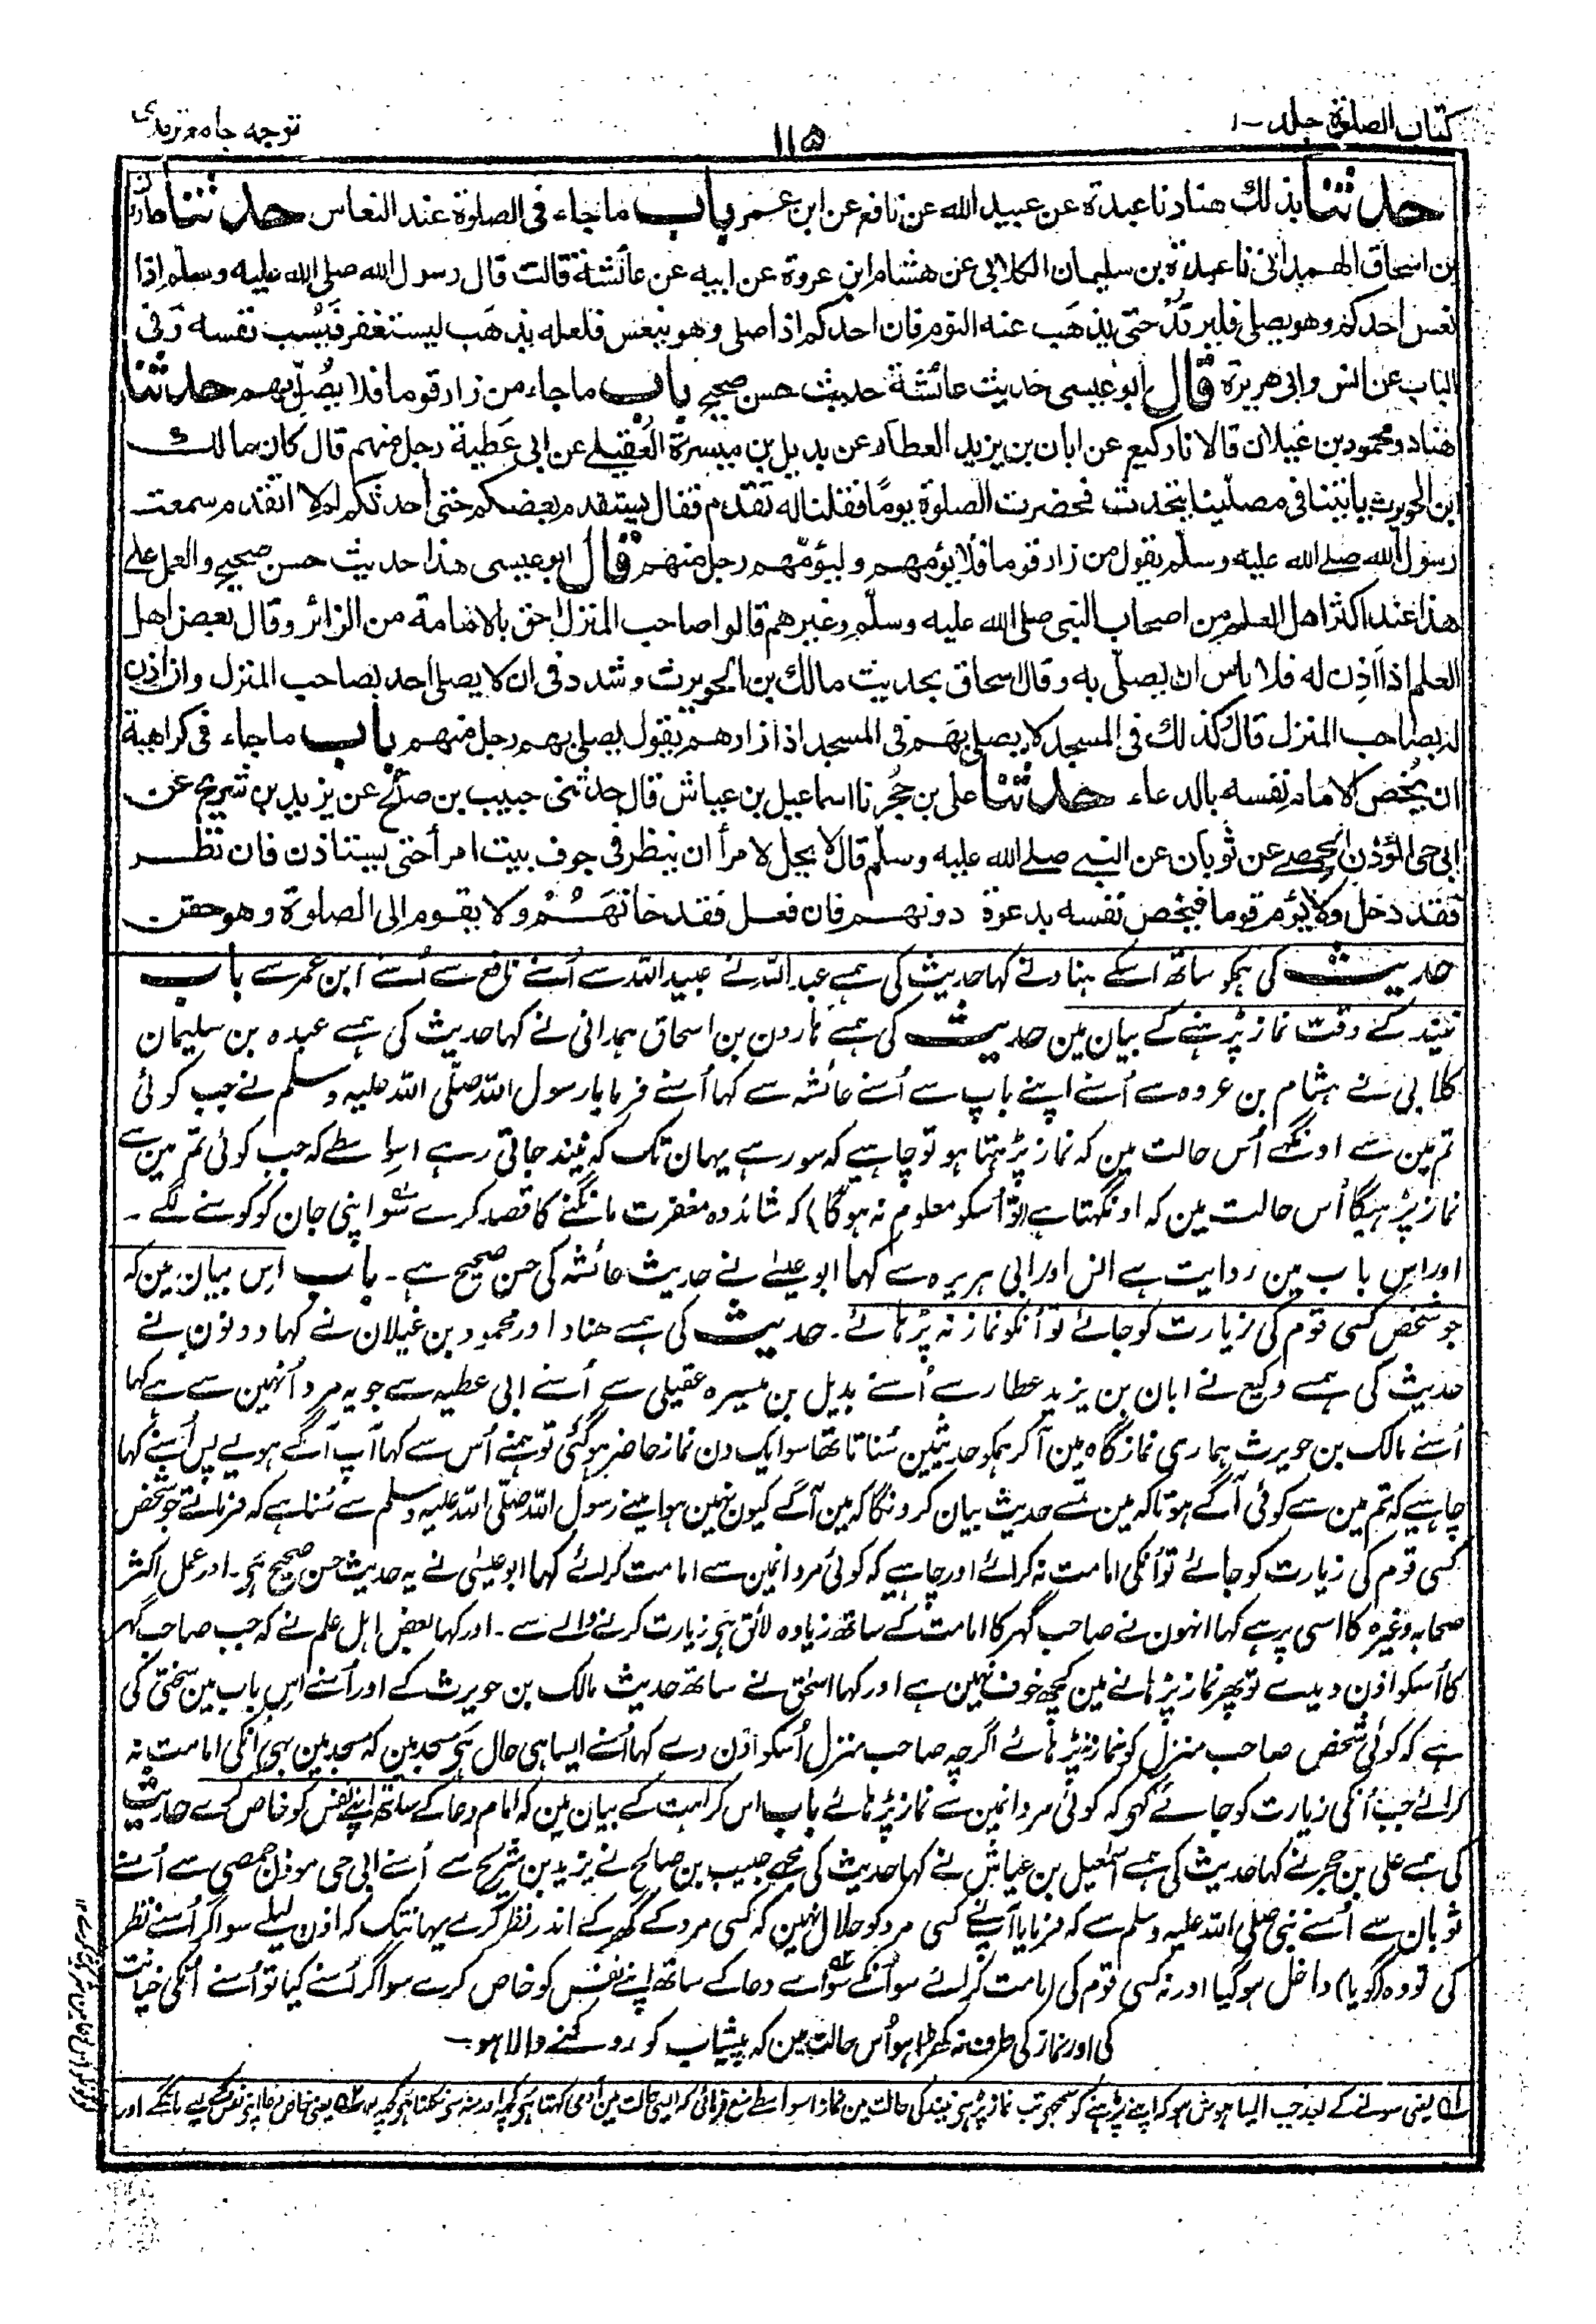 كتاب الصلوة جلد - ١
١١٥
ترجمه جامع ترمذى
حدثنا بذلك هناد نا عبدة عن عبيد الله عن نافع عن ابن عمر باب ما جاء فى الصلوة عند النعاس حدثنا هارون
بن اسحاق الهمدانى نا عبدة بن سليمان الكلابى عن هشام ابن عروة عن ابيه عن عائشة قالت قال رسول الله صلى الله عليه وسلم اذا
نعس احدكم وهو يصلى فليرقد حتى يذهب عنه النوم فان احدكم اذا صلى وهو ينعس فلعله يذهب ليستغفر فيسب نفسه وفى
الباب عن انس وابى هريرة قال ابو عيسى حديث عائشة حديث حسن صحيح باب ما جاء من زار قوما فلا يصل بهم حدثنا
هناد ومحمود بن غيلان قالا نا وكيع عن ابان بن يزيد العطار عن بديل بن ميسرة العقيلى عن ابى عطية رجل منهم قال كان مالك
ابن الحويرث ياتينا فى مصلينا يتحدث فحضرت الصلوة يوما فقلنا له تقدم فقال ليتقدم بعضكم حتى احدثكم لم لا اتقدم سمعت
رسول الله صلے الله عليه وسلم يقول من زار قوما فلا يؤمهم وليؤمهم رجل منهم قال ابو عيسى هذا حديث حسن صحيح والعمل على
هذا عند اكثر اهل العلم من اصحاب النبى صلى الله عليه وسلم وغيرهم قالوا صاحب المنزل احق بالامامة من الزائر وقال بعض اهل
العلم اذا اذن له فلا باس ان يصلى به وقال اسحاق بحديث مالك بن الحويرث وشدد فى ان لا يصلى احد بصاحب المنزل وان اذن
له صاحب المنزل قال كذلك فى المسجد لا يصلى بهم فى المسجد اذا زارهم يقول يصلى بهم رجل منهم باب ما جاء فى كراهية
ان يخص الامام نفسه بالدعاء حدثنا على بن حجر نا اسماعيل بن عياش قال حدثنى حبيب بن صالح عن يزيد بن شريح عن
ابى حى المؤذن الحمصى عن ثوبان عن النبى صلے الله عليه وسلم قال لا يحل لامرأ ان ينظر فى جوف بيت امرأ حتى يستاذن فان نظر
فقد دخل ولا يؤم قوما فيخص نفسه بدعوة دونهم فان فعل فقد خانهم ولا يقوم الى الصلوة وهو حقن
حدیث کی ہمکو ساتھ اسکے ہناد نے کہا حدیث کی ہمسے عبد اللہ نے عبید اللہ سے اُسنے نافع سے اُسنے ابن عمر سے باب
نیند کے وقت نماز پڑہنے کے بیان مین حدیث کی ہمسے ہارون بن اسحاق ہمدانی نے کہا حدیث کی ہمسے عبدہ بن سلیمان
کلابی نے ہشام بن عروہ سے اُسنے اپنے باپ سے اُسنے عائشہ سے کہا اُسنے فرمایا رسول اللہ صلّی اللہ علیہ وسلم نے جب کوئی
تم مین سے اونگھے اُس حالت مین کہ نماز پڑہتا ہو تو چاہیے کہ سو رہے یہان تک کہ نیند جاتی رہے اسواسطے کہ جب کوئی تم مین سے
نماز پڑہیگا اُس حالت مین کہ اونگہتا ہے (تو اُسکو معلوم نہ ہوگا) کہ شائد وہ مغفرت مانگنے کا قصد کرے سو اپنی جان کو کوسنے لگے ۔
اور اِس باب مین روایت ہے انس اور ابی ہریرہ سے کہا ابو عیسٰے نے حدیث عائشہ کی حسن صحیح ہے ۔ باب اِس بیان مین کہ
جو شخص کسی قوم کی زیارت کو جائے تو اُنکو نماز نہ پڑہائے ۔ حدیث کی ہمسے ھناد اور محمود بن غیلان نے کہا دونون نے
حدیث کی ہمسے وکیع نے ابان بن یزید عطار سے اُسنے بدیل بن میسرہ عقیلی سے اُسنے ابی عطیہ سے جو یہ مرد اُنہین سے ہے کہا
اُسنے مالک بن حویرث ہماری نماز گاہ مین آکر ہمکو حدیثین سُناتا تھا سو ایک دن نماز حاضر ہوگئی تو ہمنے اُس سے کہا آپ آگے ہوئیے پس اُسنے کہا
چاہیے کہ تم مین سے کوئی آگے ہو تاکہ مین تمسے حدیث بیان کرونگا کہ مین آگے کیون نہین ہوا مینے رسول اللہ صلّی اللہ علیہ وسلم سے سُنا ہے کہ فرماتے جو شخص
کسی قوم کی زیارت کو جائے تو اُنکی امامت نہ کرائے اور چاہیے کہ کوئی مرد انمین سے امامت کرائے کہا ابو عیسٰی نے یہ حدیث حسن صحیح ہے ۔ اور عمل اکثر
صحابہ وغیرہ کا اسی پر ہے کہا انہون نے صاحب گہر کا امامت کے ساتھ زیادہ لائق ہے زیارت کرنے والے سے ۔ اور کہا بعض اہل علم نے کہ جب صاحب گہر
کا اُسکو اذن دیدے تو پھر نماز پڑہانے مین کچھ خوف نہین ہے اور کہا اسحٰق نے ساتھ حدیث مالک بن حویرث کے اور اُسنے اِس باب مین سختی کی
ہے کہ کوئی شخص صاحب منزل کو نماز نہ پڑہائے اگرچہ صاحب منزل اُسکو اذن دے کہا اُسنے ایسا ہی حال ہے مسجد مین کہ مسجد مین بہی اُنکی امامت نہ
کرائے جب اُنکی زیارت کو جائے کہو کہ کوئی مرد انمین سے نماز پڑہائے باب اس کراہت کے بیان مین کہ امام دعا کے ساتھ اپنے نفس کو خاص کرے حدیث
کی ہمسے علی بن حجر نے کہا حدیث کی ہمسے اسمٰعیل بن عیاش نے کہا حدیث کی مجھے حبیب بن صالح نے یزید بن شریح سے اُسنے ابی حی موذن حمصی سے اُسنے
ثوبان سے اُسنے نبی صلی اللہ علیہ وسلم سے کہ فرمایا آپنے کسی مرد کو حلال نہین کہ کسی مرد کے گھر کے اندر نظر کرے یہانتک کہ اذن لیلے سو اگر اُسنے نظر
کی تو وہ (گویا) داخل ہوگیا اور نہ کسی قوم کی امامت کرائے سو اُنکے سوائے دعا کے ساتھ اپنے نفس کو خاص کرے سو اگر اُسنے کیا تو اُسنے اُنکی خیانت
کی اور نماز کی طرف نہ کھڑا ہو اُس حالت مین کہ پیشاب کو روکنے والا ہو ۔
یعنی سونے کے بعد جب ایسا ہوش ہو کہ اپنے پڑہنے کو سمجھے تب نماز پڑہے نیند کی حالت مین نماز اسواسطے منع فرمائی کہ ایسی حالت مین آدمی کہتا ہے کچھ اور منہ سے نکلتا ہے کچھ یعنی خاص دعا اپنے نفس کے لیے مانگے اور